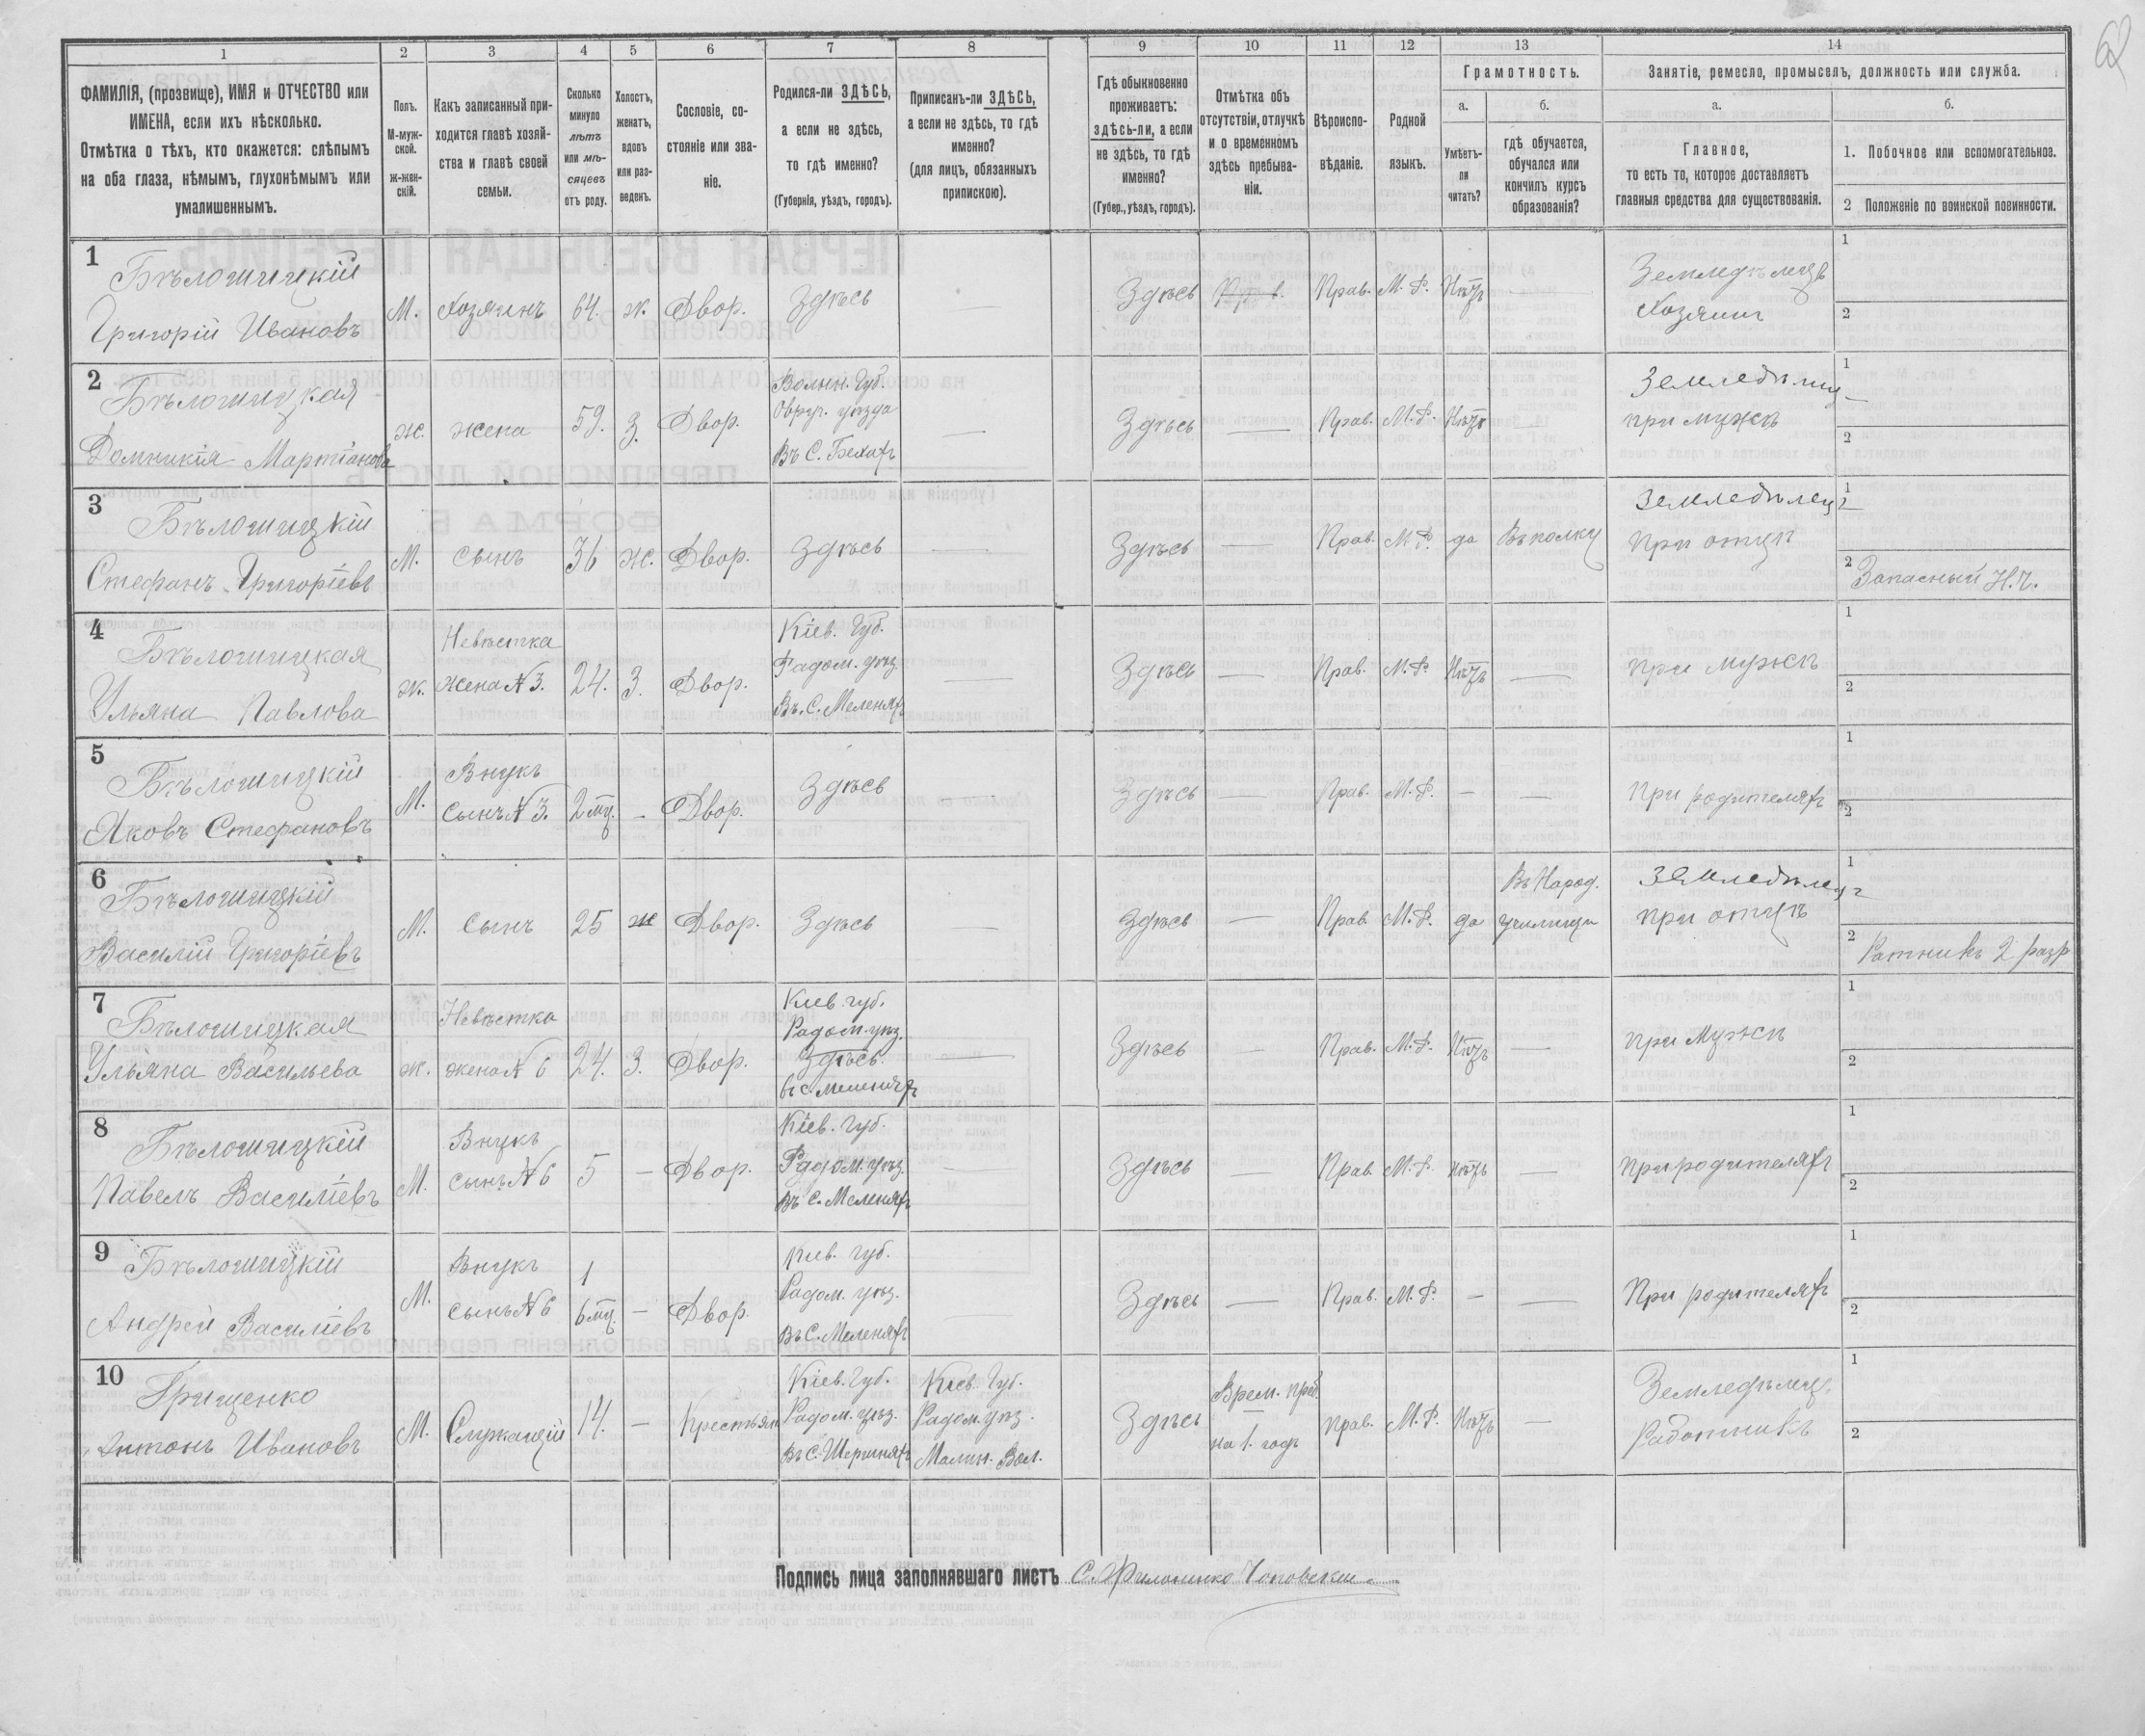 62
1 2 3 4 5 6 7 8 9 10 11 12 13 14
ФАМИЛІЯ, (прозвище), ИМЯ и ОТЧЕСТВО или
ИМЕНА, если ихъ нѣсколько.
Отмѣтка о тѣхъ, кто окажется: слѣпымъ
на оба глаза, нѣмымъ, глухонѣмымъ или
умалишеннымъ.
Полъ.
М-муж-
ской.
Ж-жен-
скій.
Какъ записанный при-
ходится главѣ хозяй-
ства и главѣ своей
семьи.
Сколько
минуло
лѣтъ
или мѣ-
сяцевъ
отъ роду.
Холостъ,
женатъ,
вдовъ
или раз-
веденъ.
Сословіе, со-
стояніе или зва-
ніе.
Родился-ли ЗДѢСЬ,
а если не здѣсь,
то гдѣ именно?
(Губернія, уѣздъ, городъ).
Приписанъ-ли ЗДѢСЬ,
а если не здѣсь, то гдѣ
именно?
(для лицъ, обязанныхъ
припискою).
Гдѣ обыкновенно
проживаетъ:
здѣсь-ли, а если
не здѣсь, то гдѣ
именно?
(Губер., уѣздъ, городъ).
Отмѣтка объ
отсутствіи, отлучкѣ
и о временномъ
здѣсь пребыва-
ніи.
Вѣроиспо-
вѣданіе.
Родной
языкъ.
Грамотность.
а.
Умѣетъ-
ли
читать?
б.
гдѣ обучается,
обучался или
кончилъ курсъ
образованія?
Занятіе, ремесло, промыселъ, должность или служба.
а.
Главное,
то есть то, которое доставляетъ
главныя средства для существованія.
б.
1. Побочное или вспомогательное.
2 Положеніе по воинской повинности.
1 Бѣлошицкій
Григорій Ивановъ
М. Хозяинъ 64. ж. Двор. Здѣсь — Здѣсь Прав. М. Р. Нѣтъ —
Земледѣлецъ
Хозяинъ
1
2
2 Бѣлошицкая
Домникія Мартіанова
ж. жена 59. З. Двор.
Волын. Губ.
Овруч. уѣзда
Въ С. Бехахъ
— Здѣсь — Прав. М. Р. Нѣтъ
Земледѣлец
при мужѣ
1
2
3 Бѣлошицкій
Стефанъ Григоріевъ
М. сынъ 36 ж. Двор. Здѣсь — Здѣсь — Прав. М. Р. да Въ полку
Земледѣлец
при отцѣ
1
2 Запасный Н.Ч.
4 Бѣлошицкая
Ульяна Павлова
ж.
Невѣстка
жена № 3. 24. З. Двор.
Кіев. Губ.
Радом. уѣз.
Въ С. Меленяхъ
— Здѣсь — Прав. М. Р. Нѣтъ —
при мужѣ
1
2
5 Бѣлошицкій
Яковъ Стефановъ
М.
Внукъ
сынъ № 3. 2 мц. - Двор. Здѣсь — Здѣсь — Прав. М. Р. — —
При родителяхъ
1
2
6 Бѣлошицкій
Василій Григоріевъ
М. сынъ 25 ж Двор. Здѣсь — Здѣсь — Прав М. Р. да
Въ Народ.
училищи
Земледѣлец
при отцѣ
1
2 Ратникъ 2 разр
7 Бѣлошицкая
Ульяна Васильева
ж.
Невѣстка
жена № 6 24. З. Двор.
Кіев. губ.
Радом. уѣз.
Здѣсь
въ с. Меленяхъ
— Здѣсь — Прав. М. Р. Нѣтъ —
при Мужѣ
1
2
8 Бѣлошицкій
Павелъ Василіевъ
М.
Внукъ
сынъ № 6 5 — Двор.
Кіев. Губ.
Радом. уѣз.
Въ с. Меленяхъ
— Здѣсь — Прав М. Р. нѣтъ —
При родителяхъ
1
2
9 Бѣлошицкій
Андрей Василіевъ
М.
Внукъ
сынъ № 6
1
6 мц. — Двор.
Кіев. губ.
Радом. уѣз.
Въ С. Меленяхъ
Здѣсь — Прав. М. Р. — —
При родителяхъ
1
2
10 Грищенко
Антонъ Ивановъ
М. Служащій 14. — Крестьян
Кіев. Губ.
Радом. уѣз.
Въ С.
Кіев. Губ.
Радом. уѣз.
Малин. Вол.
Здѣсь
Врем. преб.
на 1. годъ
прав. М. Р. Нѣтъ —
Земледѣлец.
Работникъ
1
2
Подпись лица заполнявшаго листъ С. Филоненко